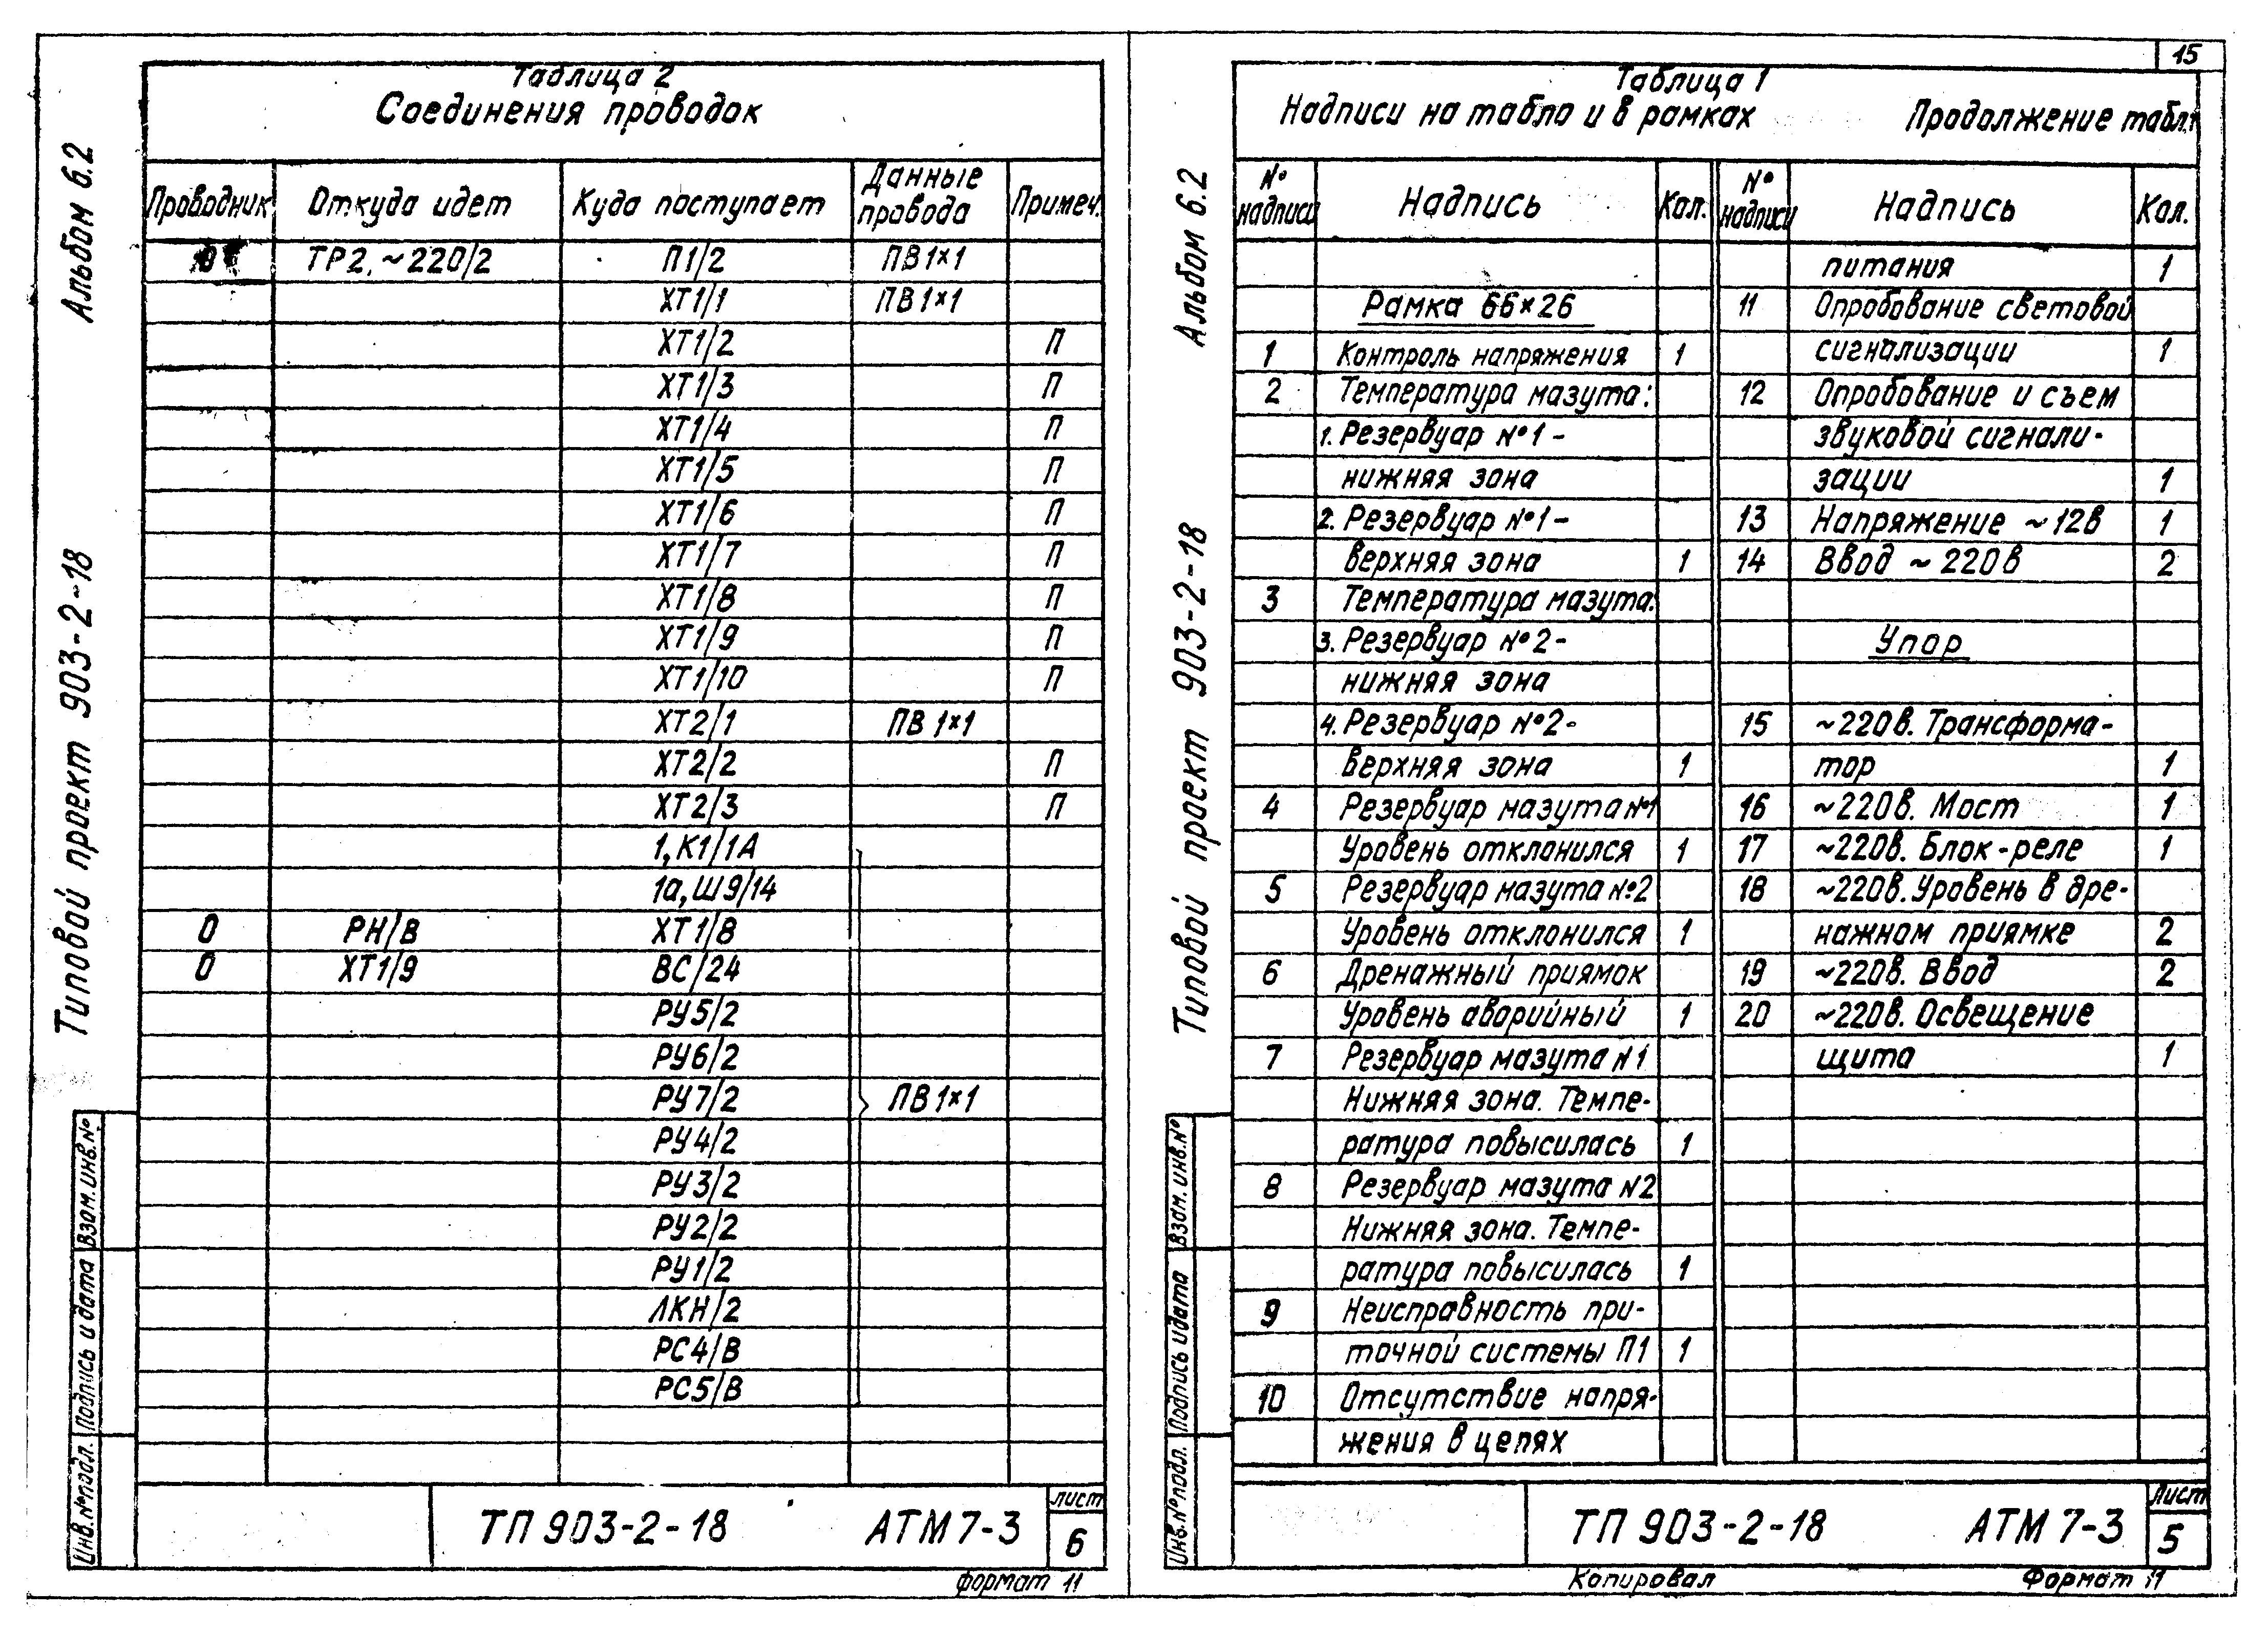 15
Альбом 6.2
Типовой проект 903-2-18
Таблица 2
Соединения проводок
Проводник | Откуда идет | Куда поступает | Данные провода | Примеч.
0 | ТР2, ~220/2 | П1/2 | ПВ1×1
ХТ1/1 | ПВ1×1
ХТ1/2 | П
ХТ1/3 | П
ХТ1/4 | П
ХТ1/5 | П
ХТ1/6 | П
ХТ1/7 | П
ХТ1/8 | П
ХТ1/9 | П
ХТ1/10 | П
ХТ2/1 | ПВ1×1
ХТ2/2 | П
ХТ2/3 | П
1,К1/1А
1а,Ш9/14
0 | РН/В | ХТ1/8
0 | ХТ1/9 | ВС/24
РУ5/2
РУ6/2
РУ7/2 | ПВ1×1
РУ4/2
РУ3/2
РУ2/2
РУ1/2
ЛКН/2
РС4/В
РС5/В
Взам. инв.№
Подпись и дата
Инв.№подл.
ТП 903-2-18 АТМ7-3
Лист
6
Формат 11
Альбом 6.2
Типовой проект 903-2-18
Таблица 1
Надписи на табло и в рамках
Продолжение табл.1
№ надписи | Надпись | Кол.
Рамка 66×26
1 | Контроль напряжения | 1
2 | Температура мазута:
1. Резервуар №1-
нижняя зона
2. Резервуар №1-
верхняя зона | 1
3 | Температура мазута:
3. Резервуар №2-
нижняя зона
4. Резервуар №2-
верхняя зона | 1
4 | Резервуар мазута №1
Уровень отклонился | 1
5 | Резервуар мазута №2
Уровень отклонился | 1
6 | Дренажный приямок
Уровень аварийный | 1
7 | Резервуар мазута N1
Нижняя зона. Темпе-
ратура повысилась | 1
8 | Резервуар мазута N2
Нижняя зона. Темпе-
ратура повысилась | 1
9 | Неисправность при-
точной системы П1 | 1
10 | Отсутствие напря-
жения в цепях
№ надписи | Надпись | Кол.
питания | 1
11 | Опробование световой
сигнализации | 1
12 | Опробование и съем
звуковой сигнали-
зации | 1
13 | Напряжение ~12в | 1
14 | Ввод ~220в | 2
Упор
15 | ~220в. Трансформа-
тор | 1
16 | ~220в. Мост | 1
17 | ~220в. Блок-реле | 1
18 | ~220в. Уровень в дре-
нажном приямке | 2
19 | ~220в. Ввод | 2
20 | ~220в. Освещение
щита | 1
Взам. инв.№
Подпись и дата
Инв.№подл.
ТП 903-2-18 АТМ7-3
Лист
5
Копировал
Формат 11